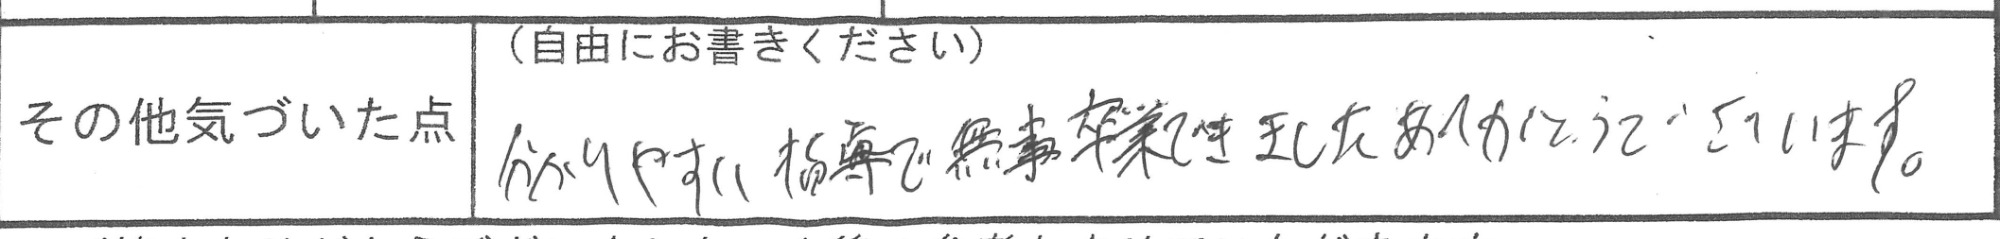 （自由にお書きください）
その他気づいた点
分かりやすい指導で無事卒業できましたありがとうございます。